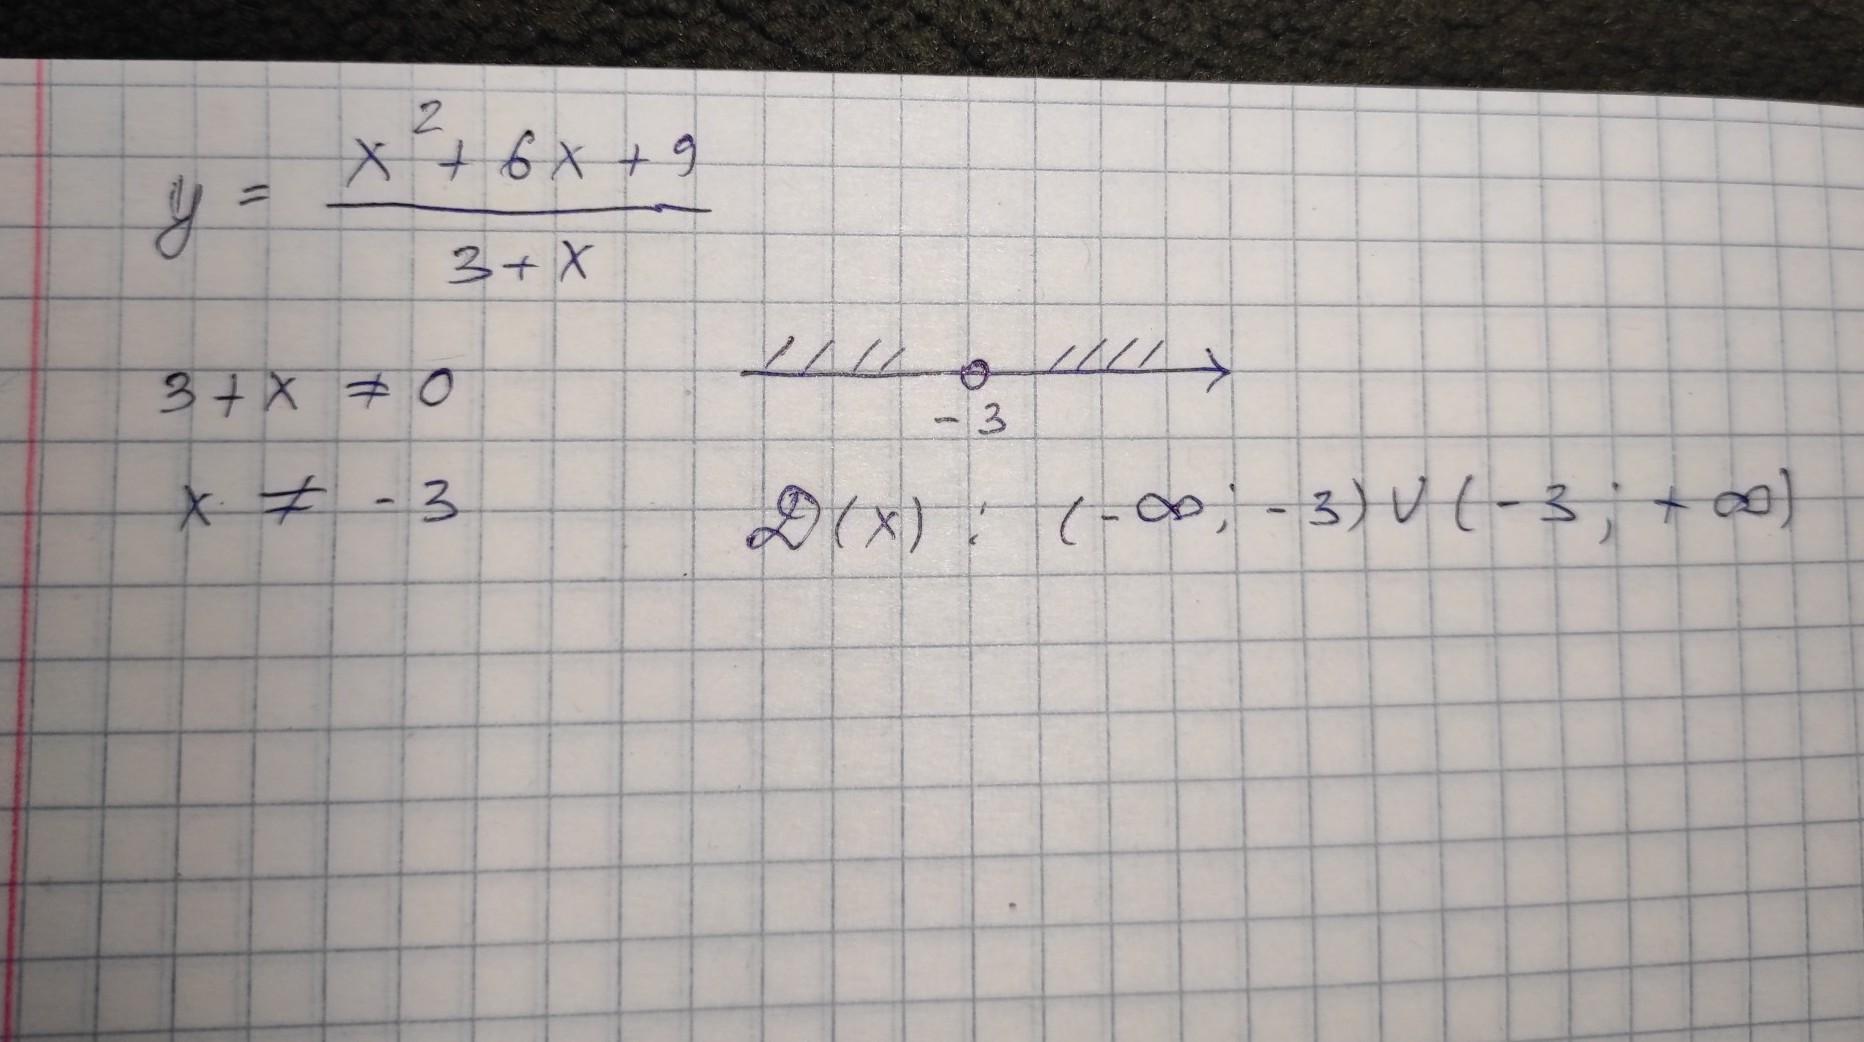 y = (x² + 6x + 9) / (3 + x)
3 + x ≠ 0
x ≠ -3
-3
D(x) : (-∞; -3) ∪ (-3; +∞)